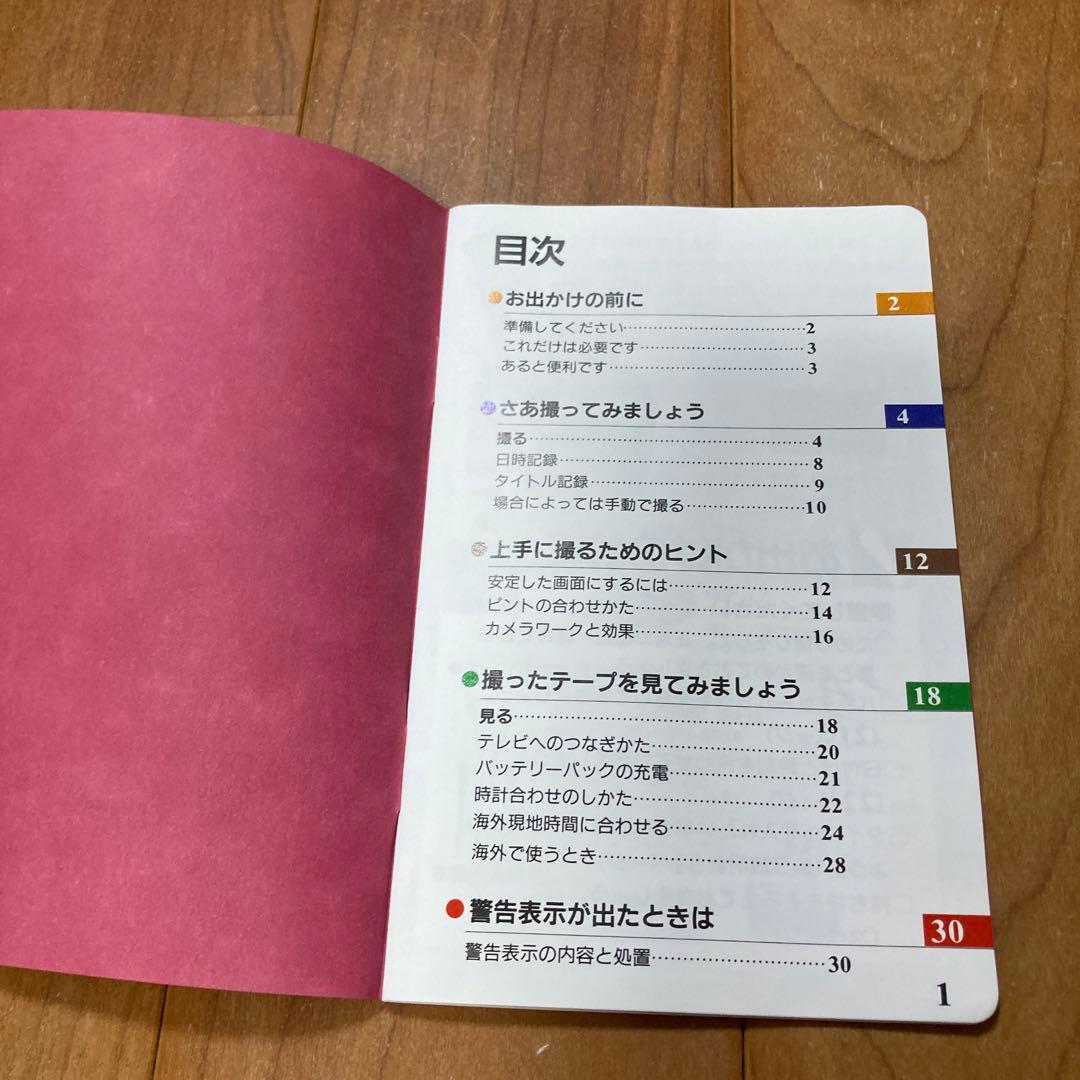 目次
お出かけの前に 2
準備してください………………………………2
これだけは必要です……………………………3
あると便利です…………………………………3
さあ撮ってみましょう 4
撮る………………………………………………4
日時記録…………………………………………8
タイトル記録……………………………………9
場合によっては手動で撮る……………………10
上手に撮るためのヒント 12
安定した画面にするには………………………12
ピントの合わせかた……………………………14
カメラワークと効果……………………………16
撮ったテープを見てみましょう 18
見る………………………………………………18
テレビへのつなぎかた…………………………20
バッテリーパックの充電………………………21
時計合わせのしかた……………………………22
海外現地時間に合わせる………………………24
海外で使うとき…………………………………28
警告表示が出たときは 30
警告表示の内容と処置…………………………30
1